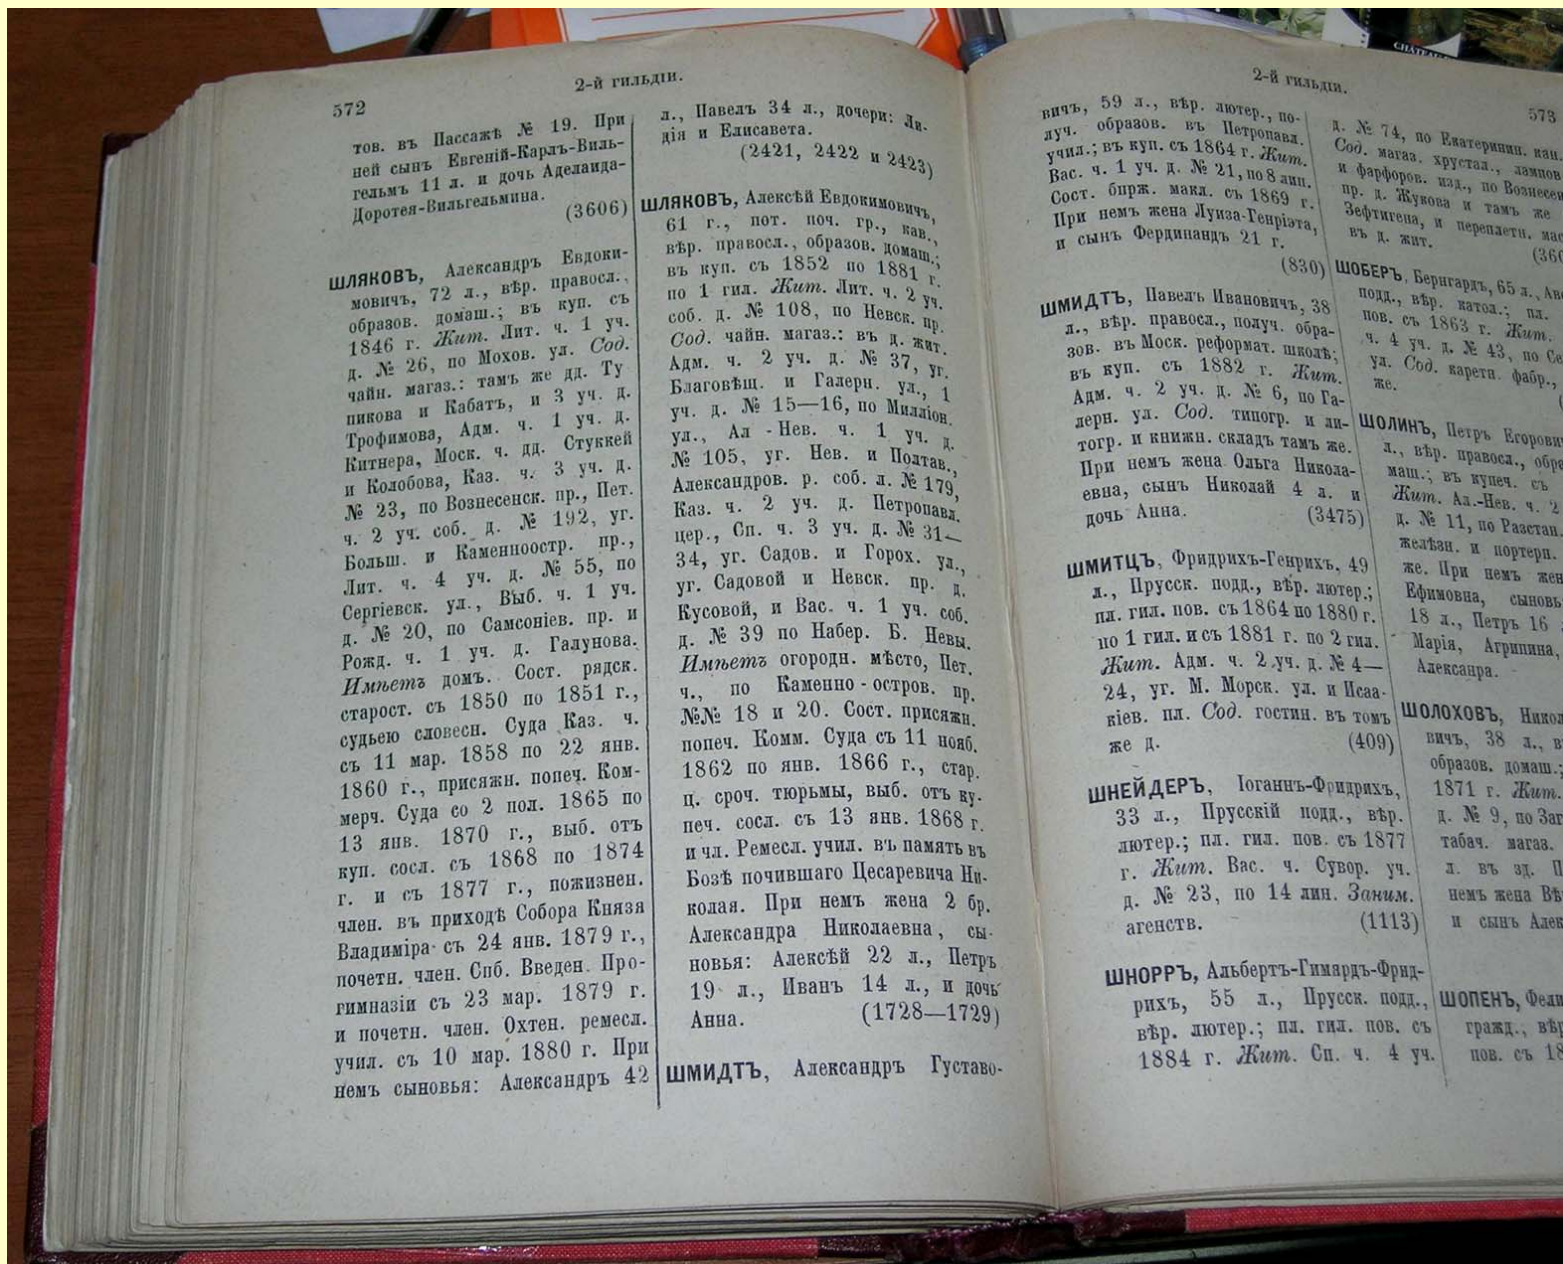 572
2-й гильдіи.
тов. въ Пассажѣ № 19. При
ней сынъ Евгеній-Карлъ-Виль-
гельмъ 11 л. и дочь Аделаида-
Доротея-Вильгельмина.
(3606)
ШЛЯКОВЪ, Александръ Евдоки-
мовичъ, 72 л., вѣр. правосл.,
образов. домаш.; въ куп. съ
1846 г. Жит. Лит. ч. 1 уч.
д. № 26, по Мохов. ул. Сод.
чайн. магаз.: тамъ же дд. Ту
пикова и Кабатъ, и 3 уч. д.
Трофимова, Адм. ч. 1 уч. д.
Китнера, Моск. ч. дд. Стуккей
и Колобова, Каз. ч. 3 уч. д.
№ 23, по Вознесенск. пр., Пет.
ч. 2 уч. соб. д. № 192, уг.
Больш. и Каменноостр. пр.,
Лит. ч. 4 уч. д. № 55, по
Сергіевск. ул., Выб. ч. 1 уч.
д. № 20, по Самсоніев. пр. и
Рожд. ч. 1 уч. д. Галунова.
Имѣетъ домъ. Сост. рядск.
старост. съ 1850 по 1851 г.,
судьею словесн. Суда Каз. ч.
съ 11 мар. 1858 по 22 янв.
1860 г., присяжн. попеч. Ком-
мерч. Суда со 2 пол. 1865 по
13 янв. 1870 г., выб. отъ
куп. сосл. съ 1868 по 1874
г. и съ 1877 г., пожизнен.
член. въ приходѣ Собора Князя
Владиміра съ 24 янв. 1879 г.,
почетн. член. Спб. Введен. Про-
гимназіи съ 23 мар. 1879 г.
и почетн. член. Охтен. ремесл.
учил. съ 10 мар. 1880 г. При
немъ сыновья: Александръ 42
л., Павелъ 34 л., дочери: Ли-
дія и Елисавета.
(2421, 2422 и 2423)
ШЛЯКОВЪ, Алексѣй Евдокимовичъ,
61 г., пот. поч. гр., кав.,
вѣр. правосл., образов. домаш.;
въ куп. съ 1852 по 1881 г.
по 1 гил. Жит. Лит. ч. 2 уч.
соб. д. № 108, по Невск. пр.
Сод. чайн. магаз.: въ д. жит.
Адм. ч. 2 уч. д. № 37, уг.
Благовѣщ. и Галерн. ул., 1
уч. д. № 15—16, по Милліон.
ул., Ал - Нев. ч. 1 уч. д.
№ 105, уг. Нев. и Полтав.,
Александров. р. соб. л. № 179,
Каз. ч. 2 уч. д. Петропавл.
цер., Сп. ч. 3 уч. д. № 31—
34, уг. Садов. и Горох. ул.,
уг. Садовой и Невск. пр. д.
Кусовой, и Вас. ч. 1 уч. соб.
д. № 39 по Набер. Б. Невы.
Имѣетъ огородн. мѣсто, Пет.
ч., по Каменно - остров. пр.
№№ 18 и 20. Сост. присяжн.
попеч. Комм. Суда съ 11 нояб.
1862 по янв. 1866 г., стар.
ц. сроч. тюрьмы, выб. отъ ку-
печ. сосл. съ 13 янв. 1868 г.
и чл. Ремесл. учил. въ память въ
Бозѣ почившаго Цесаревича Ни-
колая. При немъ жена 2 бр.
Александра Николаевна, сы-
новья: Алексѣй 22 л., Петръ
19 л., Иванъ 14 л., и дочь
Анна. (1728—1729)
ШМИДТЪ, Александръ Густаво-
2-й гильдіи.
573
вичъ, 59 л., вѣр. лютер., по-
луч. образов. въ Петропавл.
учил.; въ куп. съ 1864 г. Жит.
Вас. ч. 1 уч. д. № 21, по 8 лин.
Сост. бирж. макл. съ 1869 г.
При немъ жена Луиза-Генріэта,
и сынъ Фердинандъ 21 г.
(830)
ШМИДТЪ, Павелъ Ивановичъ, 38
л., вѣр. правосл., получ. обра-
зов. въ Моск. реформат. школѣ;
въ куп. съ 1882 г. Жит.
Адм. ч. 2 уч. д. № 6, по Га-
лерн. ул. Сод. типогр. и ли-
тогр. и книжн. складъ тамъ же.
При немъ жена Ольга Никола-
евна, сынъ Николай 4 л. и
дочь Анна. (3475)
ШМИТЦЪ, Фридрихъ-Генрихъ, 49
л., Прусск. подд., вѣр. лютер.;
пл. гил. пов. съ 1864 по 1880 г.
по 1 гил. и съ 1881 г. по 2 гил.
Жит. Адм. ч. 2 уч. д. № 4—
24, уг. М. Морск. ул. и Исаа-
кіев. пл. Сод. гостин. въ томъ
же д. (409)
ШНЕЙДЕРЪ, Іоганнъ-Фридрихъ,
33 л., Прусскій подд., вѣр.
лютер.; пл. гил. пов. съ 1877
г. Жит. Вас. ч. Сувор. уч.
д. № 23, по 14 лин. Заним.
агенств. (1113)
ШНОРРЪ, Альбертъ-Гимярдъ-Фрид-
рихъ, 55 л., Прусск. подд.,
вѣр. лютер.; пл. гил. пов. съ
1884 г. Жит. Сп. ч. 4 уч.
д. № 74, по Екатеринин. кан.
Сод. магаз. хрустал., лампов
и фарфоров. изд., по Вознесен
пр. д. Жукова и тамъ же
Зефтигена, и переплетн. мас
въ д. жит.
(360
ШОБЕРЪ, Бернгардъ, 65 л., Ав
подд., вѣр. катол.; пл.
пов. съ 1863 г. Жит.
ч. 4 уч. д. № 43, по Се
ул. Сод. каретн. фабр.,
же.
(
ШОЛИНЪ, Петръ Егорови
л., вѣр. правосл., обра
маш.; въ купеч. съ
Жит. Ал.-Нев. ч. 2
д. № 11, по Разстан.
желѣзн. и портерн.
же. При немъ жен
Ефимовна, сыновь
18 л., Петръ 16
Марія, Агрипина,
Алексанра.
ШОЛОХОВЪ, Никол
вичъ, 38 л., в
образов. домаш.;
1871 г. Жит.
д. № 9, по Заг
табач. магаз.
л. въ зд. П
немъ жена Вѣ
и сынъ Алек
ШОПЕНЪ, Фели
гражд., вѣр
пов. съ 18
CHATEAU